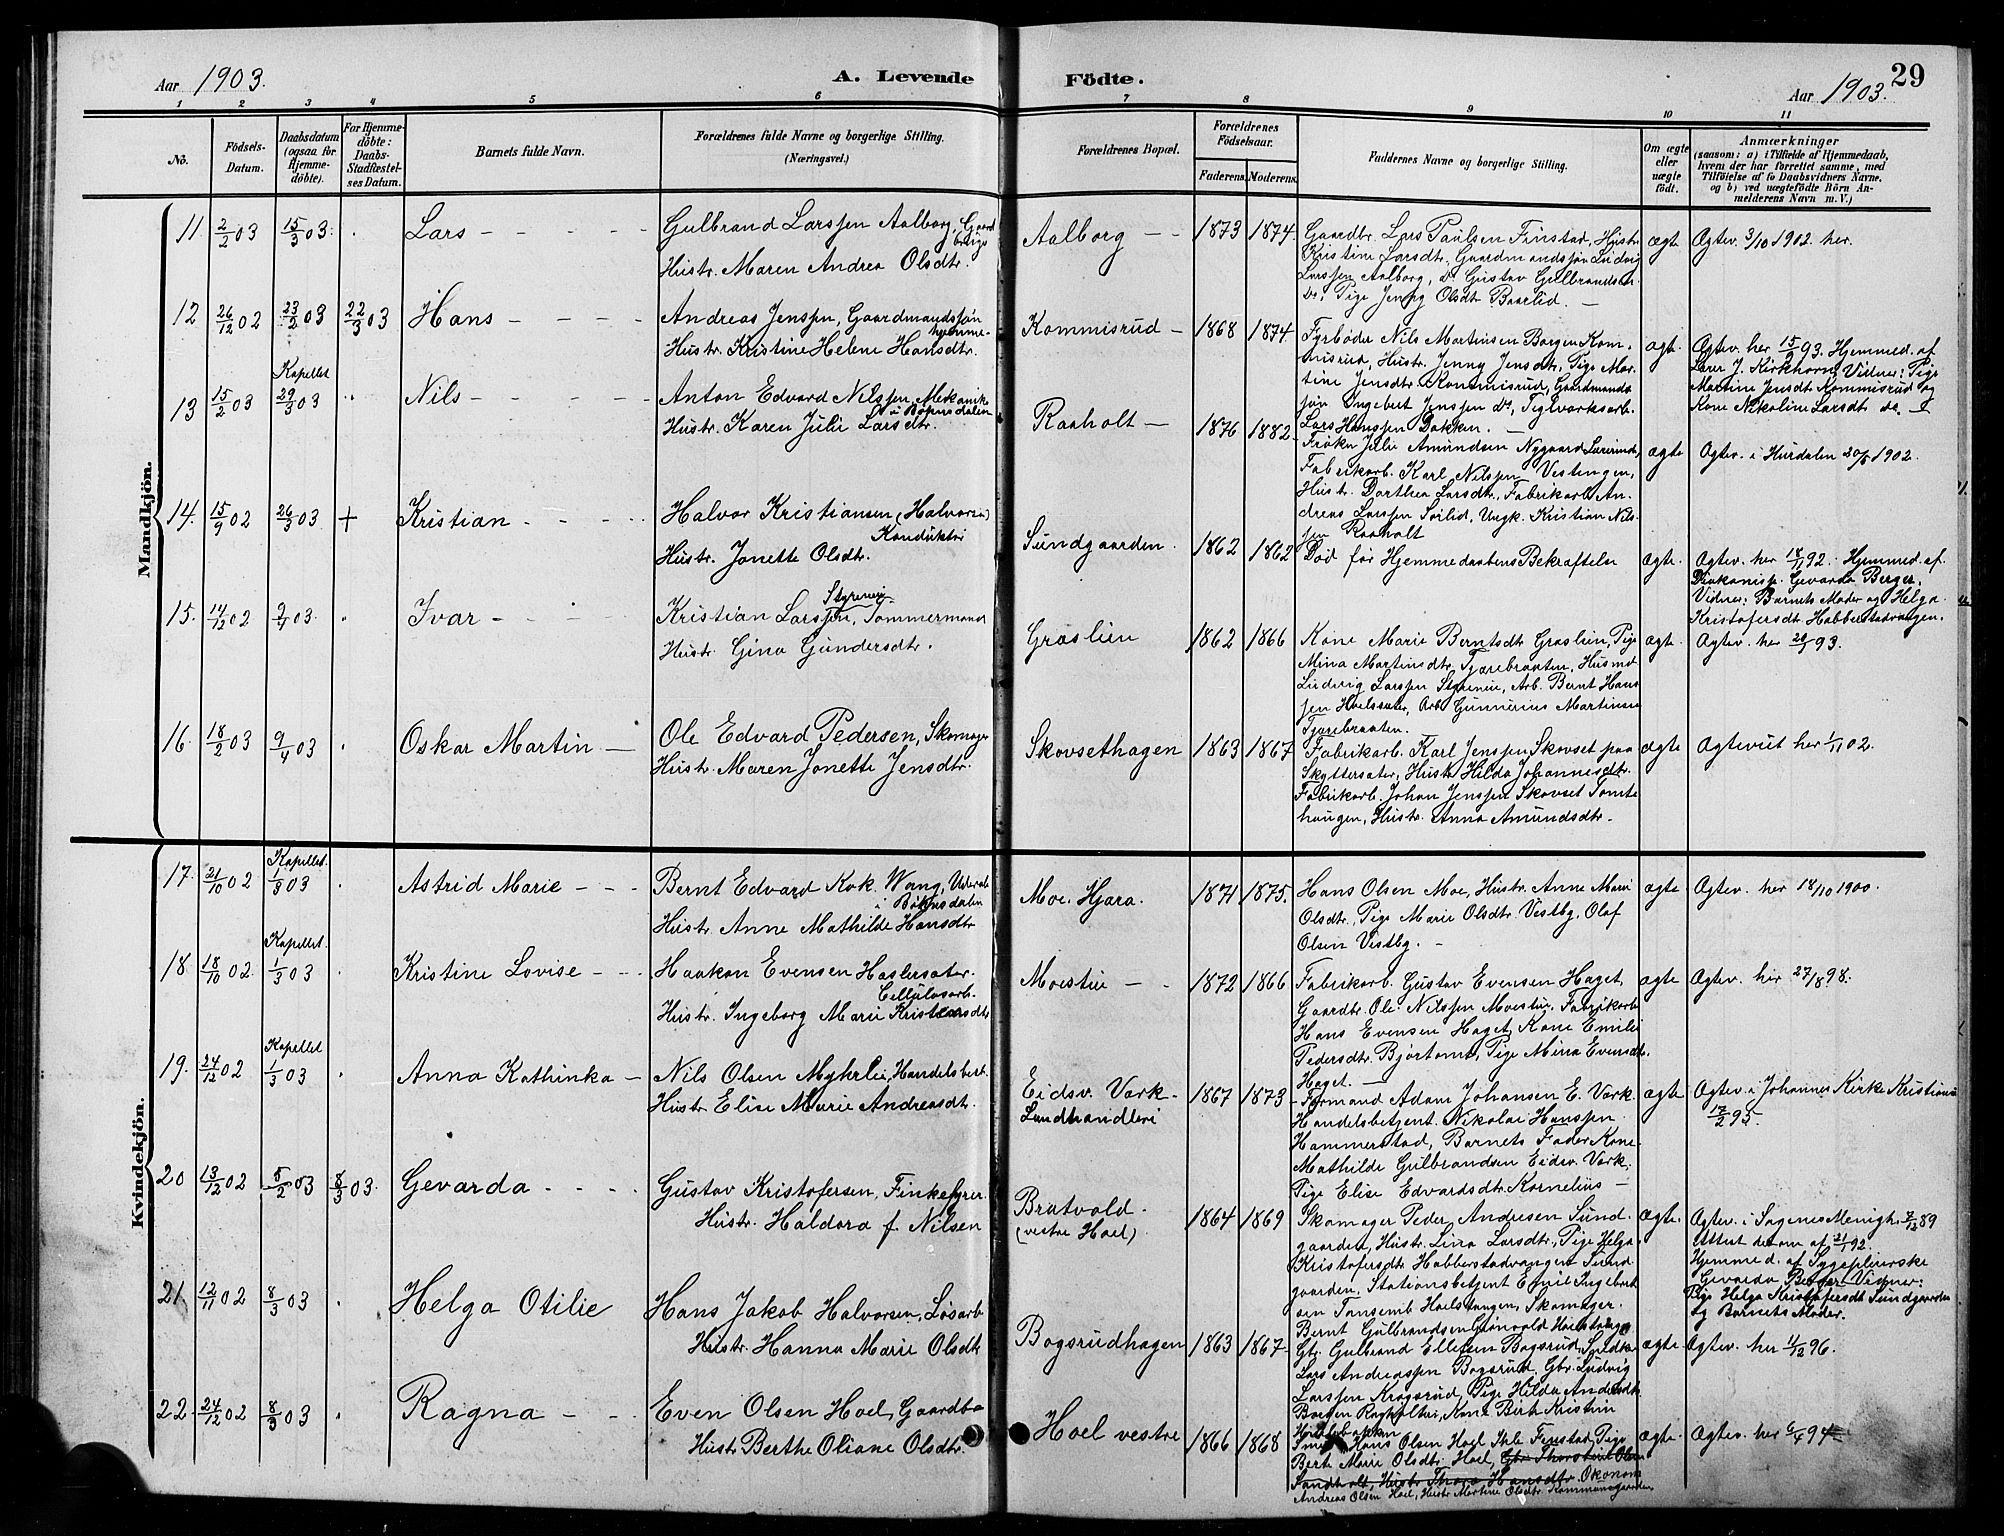 Aar 1903.
A. Levende Födte.
29
Aar 1903.
1 2 3 4 5 6 7 8 9 10 11
No.
Födsels-Datum.
Daabsdatum (ogsaa for Hjemme-döbte).
For Hjemme-döbte: Daabs-Stadfæstel-ses Datum.
Barnets fulde Navn.
Forældrenes fulde Navne og borgerlige Stilling. (Næringsvei.)
Forældrenes Bopæl.
Forældrenes Födselsaar.
Faderens. Moderens.
Faddernes Navne og borgerlige Stilling.
Om ægte eller uægte födt.
Anmærkninger
(saasom: a) i Tilfælde af Hjemmedaab,
hvem der har forrettet samme, med
Tilföielse af to Daabsvidners Navne,
og b) ved uægtefödte Börn An-
melderens Navn m. V.)
Mandkjön.
11. 2/2 03 15/3 03. Lars
Gulbrand Larssen Aalborg, Gaardbruger
Hustr. Maren Andrea Olsdtr.
Aalborg 1873 1874.
Gaardbr. Lars Paulsen Finstad, Hustr.
Kristine Larsdtr., Gaardmandssøn Ludvig
Larssen Aalborg, do Gustav Gulbrandsen
do, Pige Jenny Olsdtr. Baarlid.
ægte
Ægtev. 3/10 1902 her.
12 26/12 02 23/2 03 22/3 03 Hans
Andreas Jenssen, Gaardmandssøn hjemme
Hustr. Kristine Helene Hansdtr.
Kommisrud 1868 1874
Fyrbøder Nils Martinsen Borgen Kom-
misrud, Hustr. Jenny Jensdtr., Pige Mar-
tine Jensdtr. Kommisrud, Gaardmands
søn Ingebert Jenssen do, Teglværksarb.
Lars Hanssen Dokken.
ægte.
Ægtev. her 15/9 93. Hjemmed. af
Lærer J. Kirkhorn, Vidner: Pige
Martine Jensdt Kommisrud og
Kone Nikoline Larsdt do.
13 15/2 03 Kapellet 29/3 03 Nils
Anton Edvard Nilssen, Mekanike i Bønsdalen
Hustr. Karen Julie Larsdtr.
Raaholt 1876 1882
Frøken Julie Amundsen Nygaard Lærerinde,
Fabrikarb. Karl Nilssen Vestengen,
Hustr. Dorthea Larsdt., Fabrikarb. An-
dreas Larssen Sørlid, Ungk. Kristian Nils-
sen Raaholt
ægte
Ægtev. i Hurdalen 20/5 1902.
14. 15/9 02 26/3 03. + Kristian
Halvor Kristiansen (Halvorsen) Konduktør
Hustr. Jonette Olsdtr.
Sundgaarden. 1862 1862
Død før Hjemmedaabens Bekræftelse
ægte.
Ægtev. her 18/11 92. Hjemmed. af
Diakonisse Gevarda Berger.
Vidner: Barnets Moder og Helga
Kristofersdt. Habberstadvangen.
15. 14/12 02 2/4 03. Ivar
Kristian Larssen, Styrenie Tømmermand
Hustr. Gina Gundersdtr.
Graslien 1862 1866
Kone Marie Berntsdtr. Graslien, Pige
Mina Martinsdtr. Tjærebraaten, Husmd
Ludvig Larssen Styrenie, Arb. Bernt Hans
sen Hoelssæter, Arb. Gunnerius Martinsen
Tjærebraaten.
ægte.
Ægtev. her 20/1 93.
16. 18/2 03 9/4 03 Oskar Martin
Ole Edvard Pedersen, Skomager
Hustr. Maren Jonette Jensdtr.
Skovsethagen 1863 1867
Fabrikarb. Karl Jenssen Skovset paa
Skyttersæter, Hustr. Hilda Johannesdtr.
Fabrikarb. Johan Jenssen Skovset Tomte
haugen, Hustr. Anna Amundsdtr.
ægte
Ægteviet her 1/11 02.
Kvindekjön.
17. 21/10 02 Kapellet. 1/3 03 Astrid Marie
Bernt Edvard Kok. Wang, i Bønsdalen
Hustr. Anne Mathilde Hansdtr
Moe. Hjera. 1871 1875.
Hans Olsen Moe, Hustr. Anne Marie
Olsdtr., Pige Marie Olsdtr. Vestby, Olaf
Olsen Vestby.
ægte
Ægtev. her 18/10 1900.
18. 18/10 02 Kapellet. 1/3 03 Kristine Lovise
Haakon Evensen Haslersæter. Cellulosarb.
Hustr. Ingeborg Marie Kristiansdtr
Moestue 1872 1866
Fabrikarb. Gustav Evensen Haget,
Gaardbr. Ole Nilssen Moestue, Fabrikarb
Hans Evensen Haget, Kone Emilie
Pedersdtr. Bjørtomt, Pige Mina Evensdtr.
Haget.
ægte
Ægtev. her 27/8 98.
19. 24/12 02 Kapellet 1/3 03 Anna Kathinka
Nils Olsen Myhrlie, Handelsbest.
Hustr. Elise Marie Andreasdtr.
Eidsv. Værk
Landhandleri 1867 1873
Formand Adam Johansen E. Værk
Handelsbetjent. Nikolai Hanssen
Hammerstad, Barnets Fader Kone
Mathilde Gulbrandsen Eidsv. Værk.
Pige Elise Edvardsdtr. Kornelius
ægte
Ægtev. i Johannes Kirke Kristiania
17/2 95.
20 13/12 02 5/2 03 8/3 03. Gevarda
Gustav Kristofersen, Finkefyrer.
Hustr. Haldora f. Nilsen
Bratvold.
(vestre Hoel). 1864 1869
Skomager Peder Andresen Sund
gaarden, Hustr. Lina Larsdtr., Pige Helga
Kristofersdtr. Habberstadvangen Sund
gaarden, Stationsbetjent Emil Ingebret
sen Tansemb Hoelstangen, Skomager.
Bernt Gulbrandsen Grønvold Hoelstangen
ægte.
Ægtev. i Sagenes Menigh. 7/12 89
Attest derom af 21/1 92.
Hjemmed. af Sygepleierske
Gevarda Berger. Vidner:
Pige Helga Kristofersdt Sundgaarden
og Barnets Moder.
21. 12/11 02 8/3 03 Helga Otilie
Hans Jakob Halvorsen, Løsarb.
Hustr. Hanna Marie Olsdtr.
Bogsrudhagen 1863 1867
Gbr. Gulbrand Ellefsen Bogsrud,
Lars Andreassen Bogsrud, Gbr. Ludvig
Larssen Krogsrud, Pige Hilda Andersdtr
Kone Kristin
ægte.
Ægtev. her 1/12 96.
22. 24/12 02 8/3 03 Ragna
Even Olsen Hoel, Gaardbr
Hustr. Berthe Oliane Olsdtr.
Hoel vestre 1866 1868
Hans Olsen Hoel Finstad, Pige
Berte Marie Olsdtr. Hoel, Gbr. Thorstein Olsen
Sandholt, Hustr. Thora Hansdtr. Økonom
Andreas Olsen Hoel, Hustr. Martine Olsdtr. Kommunegaarden
ægte.
Ægtev. her 6/4 94